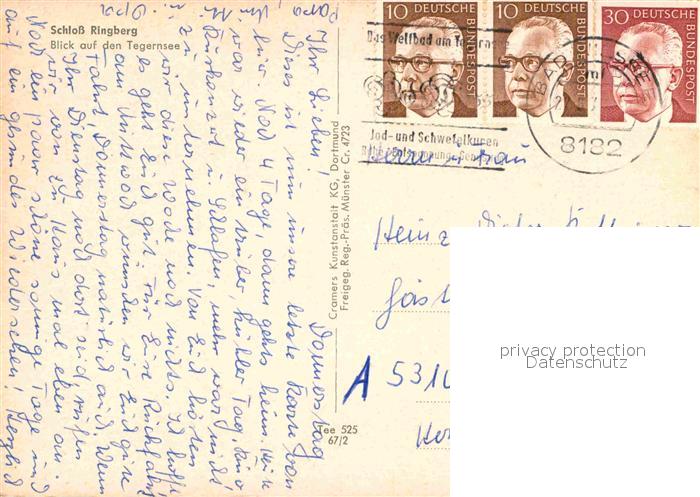 Schloß Ringberg
Blick auf den Tegernsee
10 DEUTSCHE BUNDESPOST
10 DEUTSCHE BUNDESPOST
30 DEUTSCHE BUNDESPOST
Das Weltbad am Tegernsee
Jod- und Schwefelkuren
BAD
8182
Cramers Kunstanstalt KG, Dortmund
Freigeg. Reg.-Präs. Münster Cr. 4723
Tee 525
67/2
Donnerstag
Ihr Lieben!
Dieses ist nun unsere letzte Karte von
hier. Noch 4 Tage, dann gehts heim.
war wieder ein trüber, kühler Tag.
Kurkonzert u. schlafen, mehr war nicht
zu unternehmen. Von Euch hörten
wir diese Woche noch nichts. Ich hoffe
es geht Euch gut. Für Eure Rückfahrt
am Mittwoch wünschen wir Euch gute
Fahrt, Donnerstag natürlich auch. Wenn
Ihr Dienstag noch dort seid, rufen
wir von zu Haus mal eben an.
Noch ein paar schöne sonnige Tage und
auf ein gesundes Wiedersehen! Herzlich
Opa
Herrn u. Frau
Heinz
A 531
privacy protection
Datenschutz